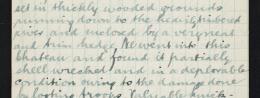 set in thickly wooded grounds
running down to the
river and enclosed by a very neat
and trim hedge. We went into this
chateau and found it partially
shell wrecked and in a deplorable
condition owing to the damage done
by looting troops. Valuable